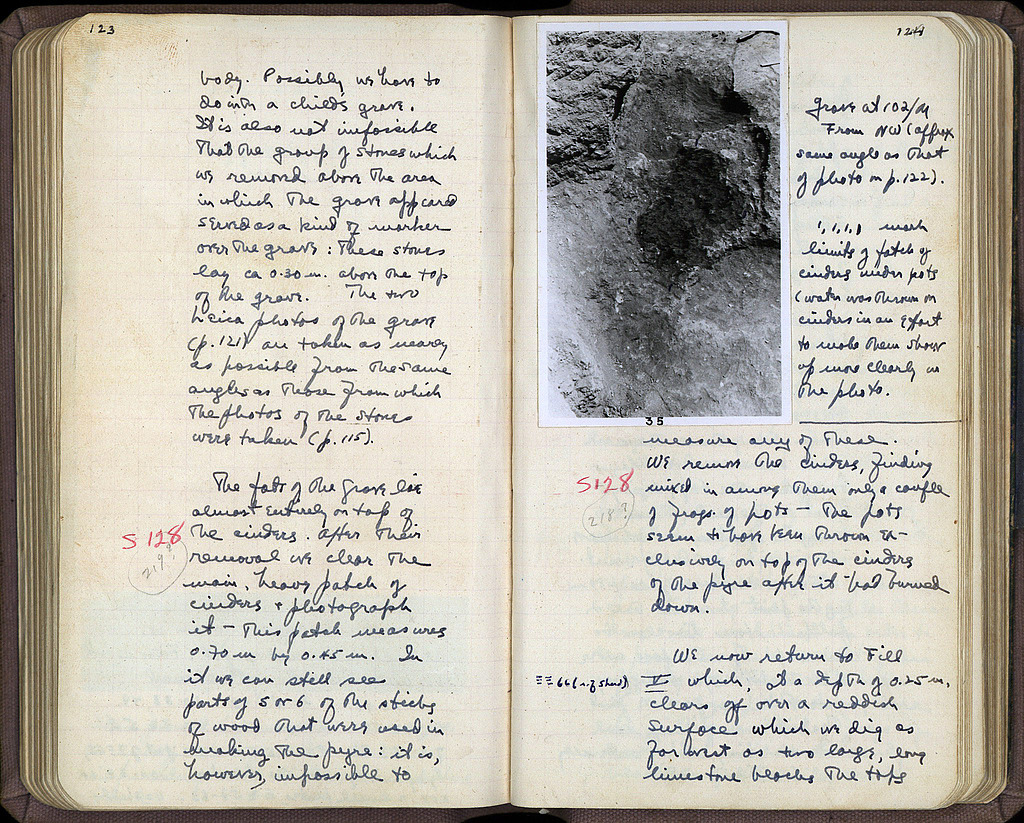 123
body. Possibly we have to
do with a childs grave.
It is also not impossible
that the group of stones which
we removed above the area
in which the grave appeared
served as a kind of marker
over the grave : These stones
lay ca 0.30 m. above the top
of the grave. The two
Leica photos of the grave
(p. 121) are taken as nearly
as possible from the same
angles as those from which
the photos of the stones
were taken (p. 115).
The pots of the grave lie
almost entirely on top of
S 128
the cinders. After their
219?
removal we clear the
main, heavy patch of
cinders + photograph
it — This patch measures
0.70 m by 0.45 m. In
it we can still see
parts of 5 or 6 of the sticks
of wood that were used in
making the pyre : it is,
however, impossible to
124
grave at 102/M
From NW (approx
same angle as that
of photo on p. 122).
1, 1, 1, 1 mark
limits of patch of
cinders under pots
(water was thrown on
cinders in an effort
to make them show
up more clearly in
the photo.
35
measure any of these.
We remove the cinders, finding
S128
mixed in among them only a couple
218?
of frags. of pots — The pots
seem to have been thrown ex-
clusively on top of the cinders
of the pyre after it had burned
down.
We now return to Fill
V which, at a depth of 0.25 m,
clears off over a reddish
surface which we dig as
far west as two large, long
limestone blocks the tops